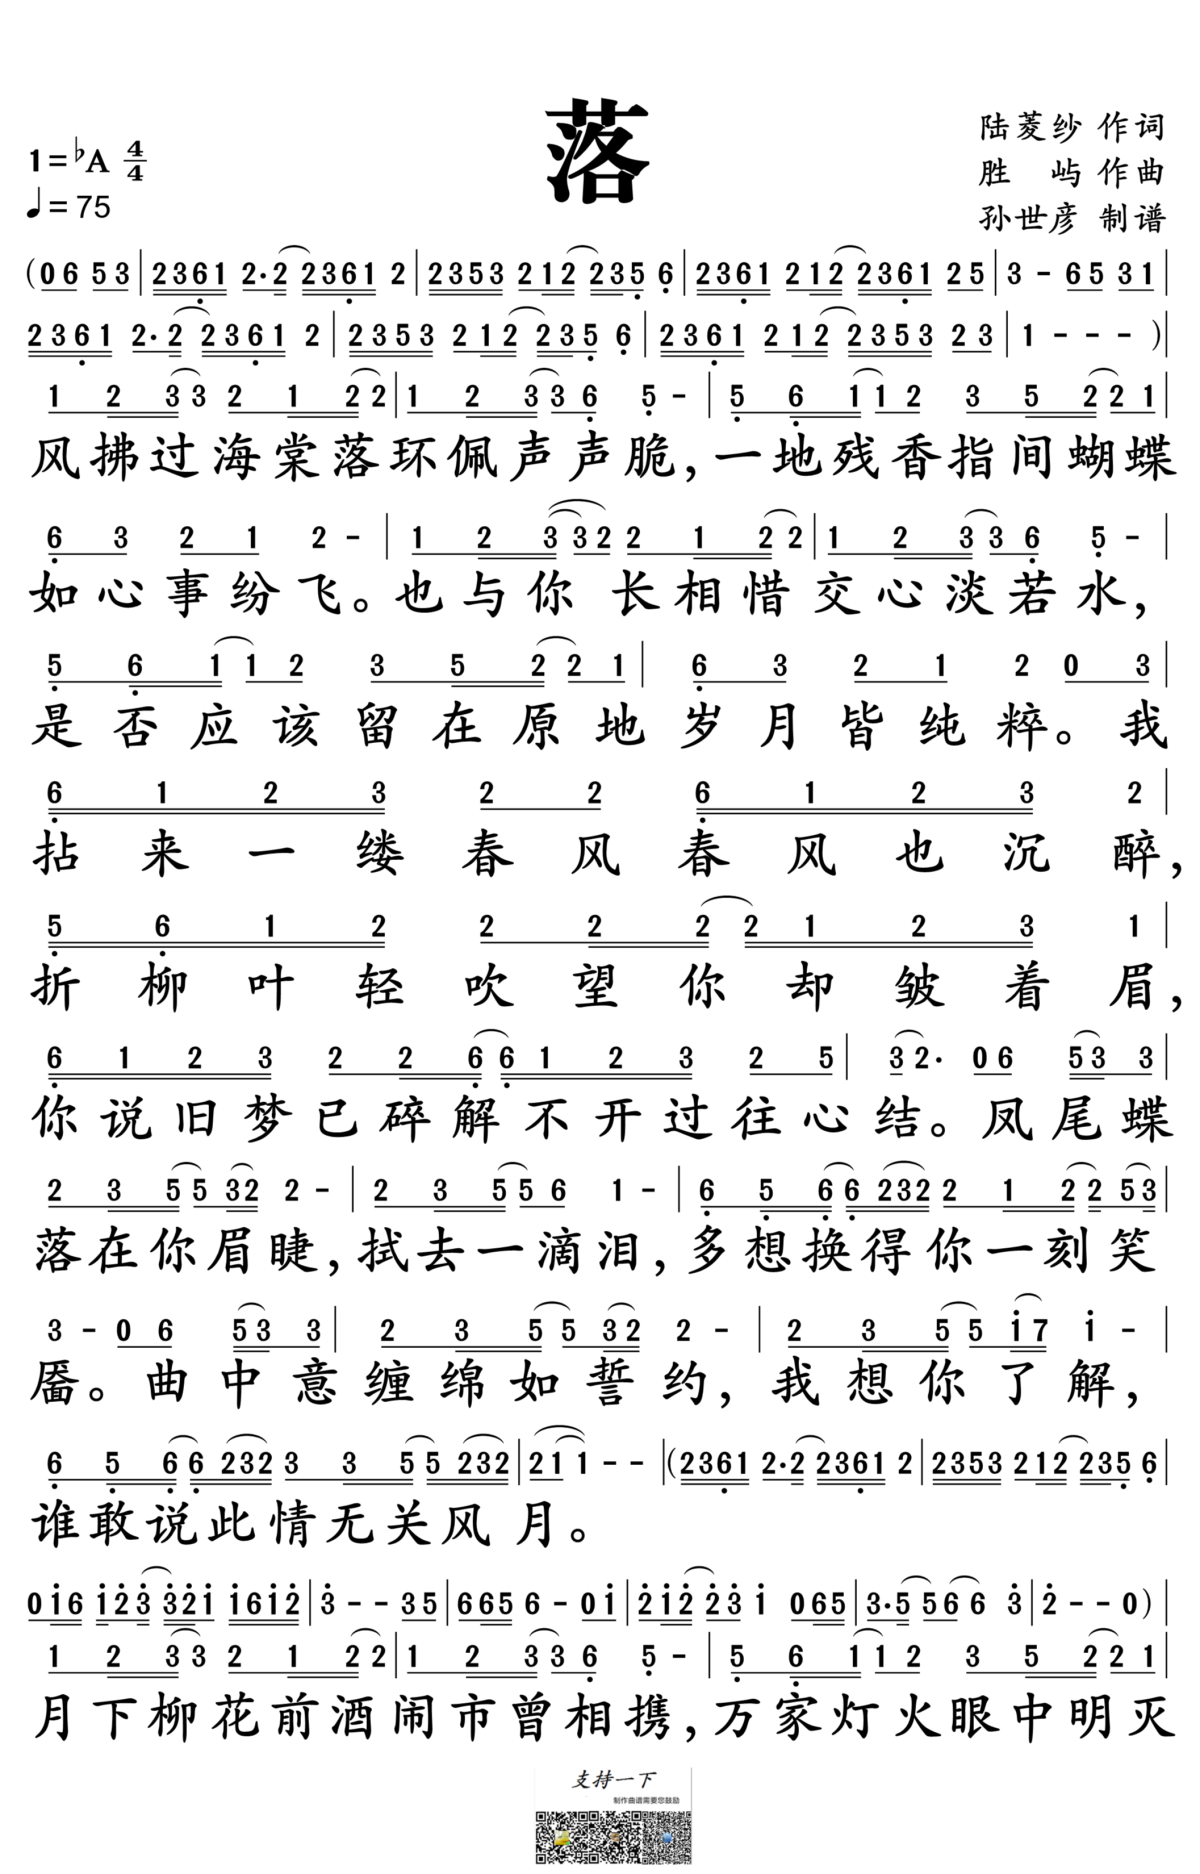 落
1=♭A 4/4
♩=75
陆菱纱 作词
胜 屿 作曲
孙世彦 制谱
(06 53|2361 2·2 2361 2|2353 212 235 6|2361 212 2361 25|3 - 65 31|
2361 2·2 2361 2|2353 212 235 6|2361 212 2353 23|1 - - - )|
1 2 3 3 2 1 2 2|1 2 3 3 6 5 -|5 6 1 1 2 3 5 2 2 1|
风拂过海棠落环佩声声脆,一地残香指间蝴蝶
6 3 2 1 2 -|1 2 3 3 2 2 1 2 2|1 2 3 3 6 5 -|
如心事纷飞。也与你长相惜交心淡若水,
5 6 1 1 2 3 5 2 2 1|6 3 2 1 2 0 3|
是否应该留在原地岁月皆纯粹。我
6 1 2 3 2 2 6 1 2 3 2|
拈来一缕春风春风也沉醉,
5 6 1 2 2 2 2 2 1 2 3 1|
折柳叶轻吹望你却皱着眉,
6 1 2 3 2 2 6 6 1 2 3 2 5|3 2· 06 53 3|
你说旧梦已碎解不开过往心结。凤尾蝶
2 3 5 5 32 2 -|2 3 5 5 6 1 -|6 5 6 6 232 2 1 2 2 53|
落在你眉睫,拭去一滴泪,多想换得你一刻笑
3 - 0 6 53 3|2 3 5 5 32 2 -|2 3 5 5 i7 i -|
靥。曲中意缠绵如誓约,我想你了解,
6 5 6 6 232 3 3 5 5 232|21 1 - -|(2361 2·2 2361 2|2353 212 235 6|
谁敢说此情无关风月。
0i6 i23 32i i6i2|3 - - 35|665 6 - 0i|2i2 23 i 065|3·5 56 6 3|2 - - 0)|
1 2 3 3 2 1 2 2|1 2 3 3 6 5 -|5 6 1 1 2 3 5 2 2 1|
月下柳花前酒闹市曾相携,万家灯火眼中明灭
支持一下
制作曲谱需要您鼓励